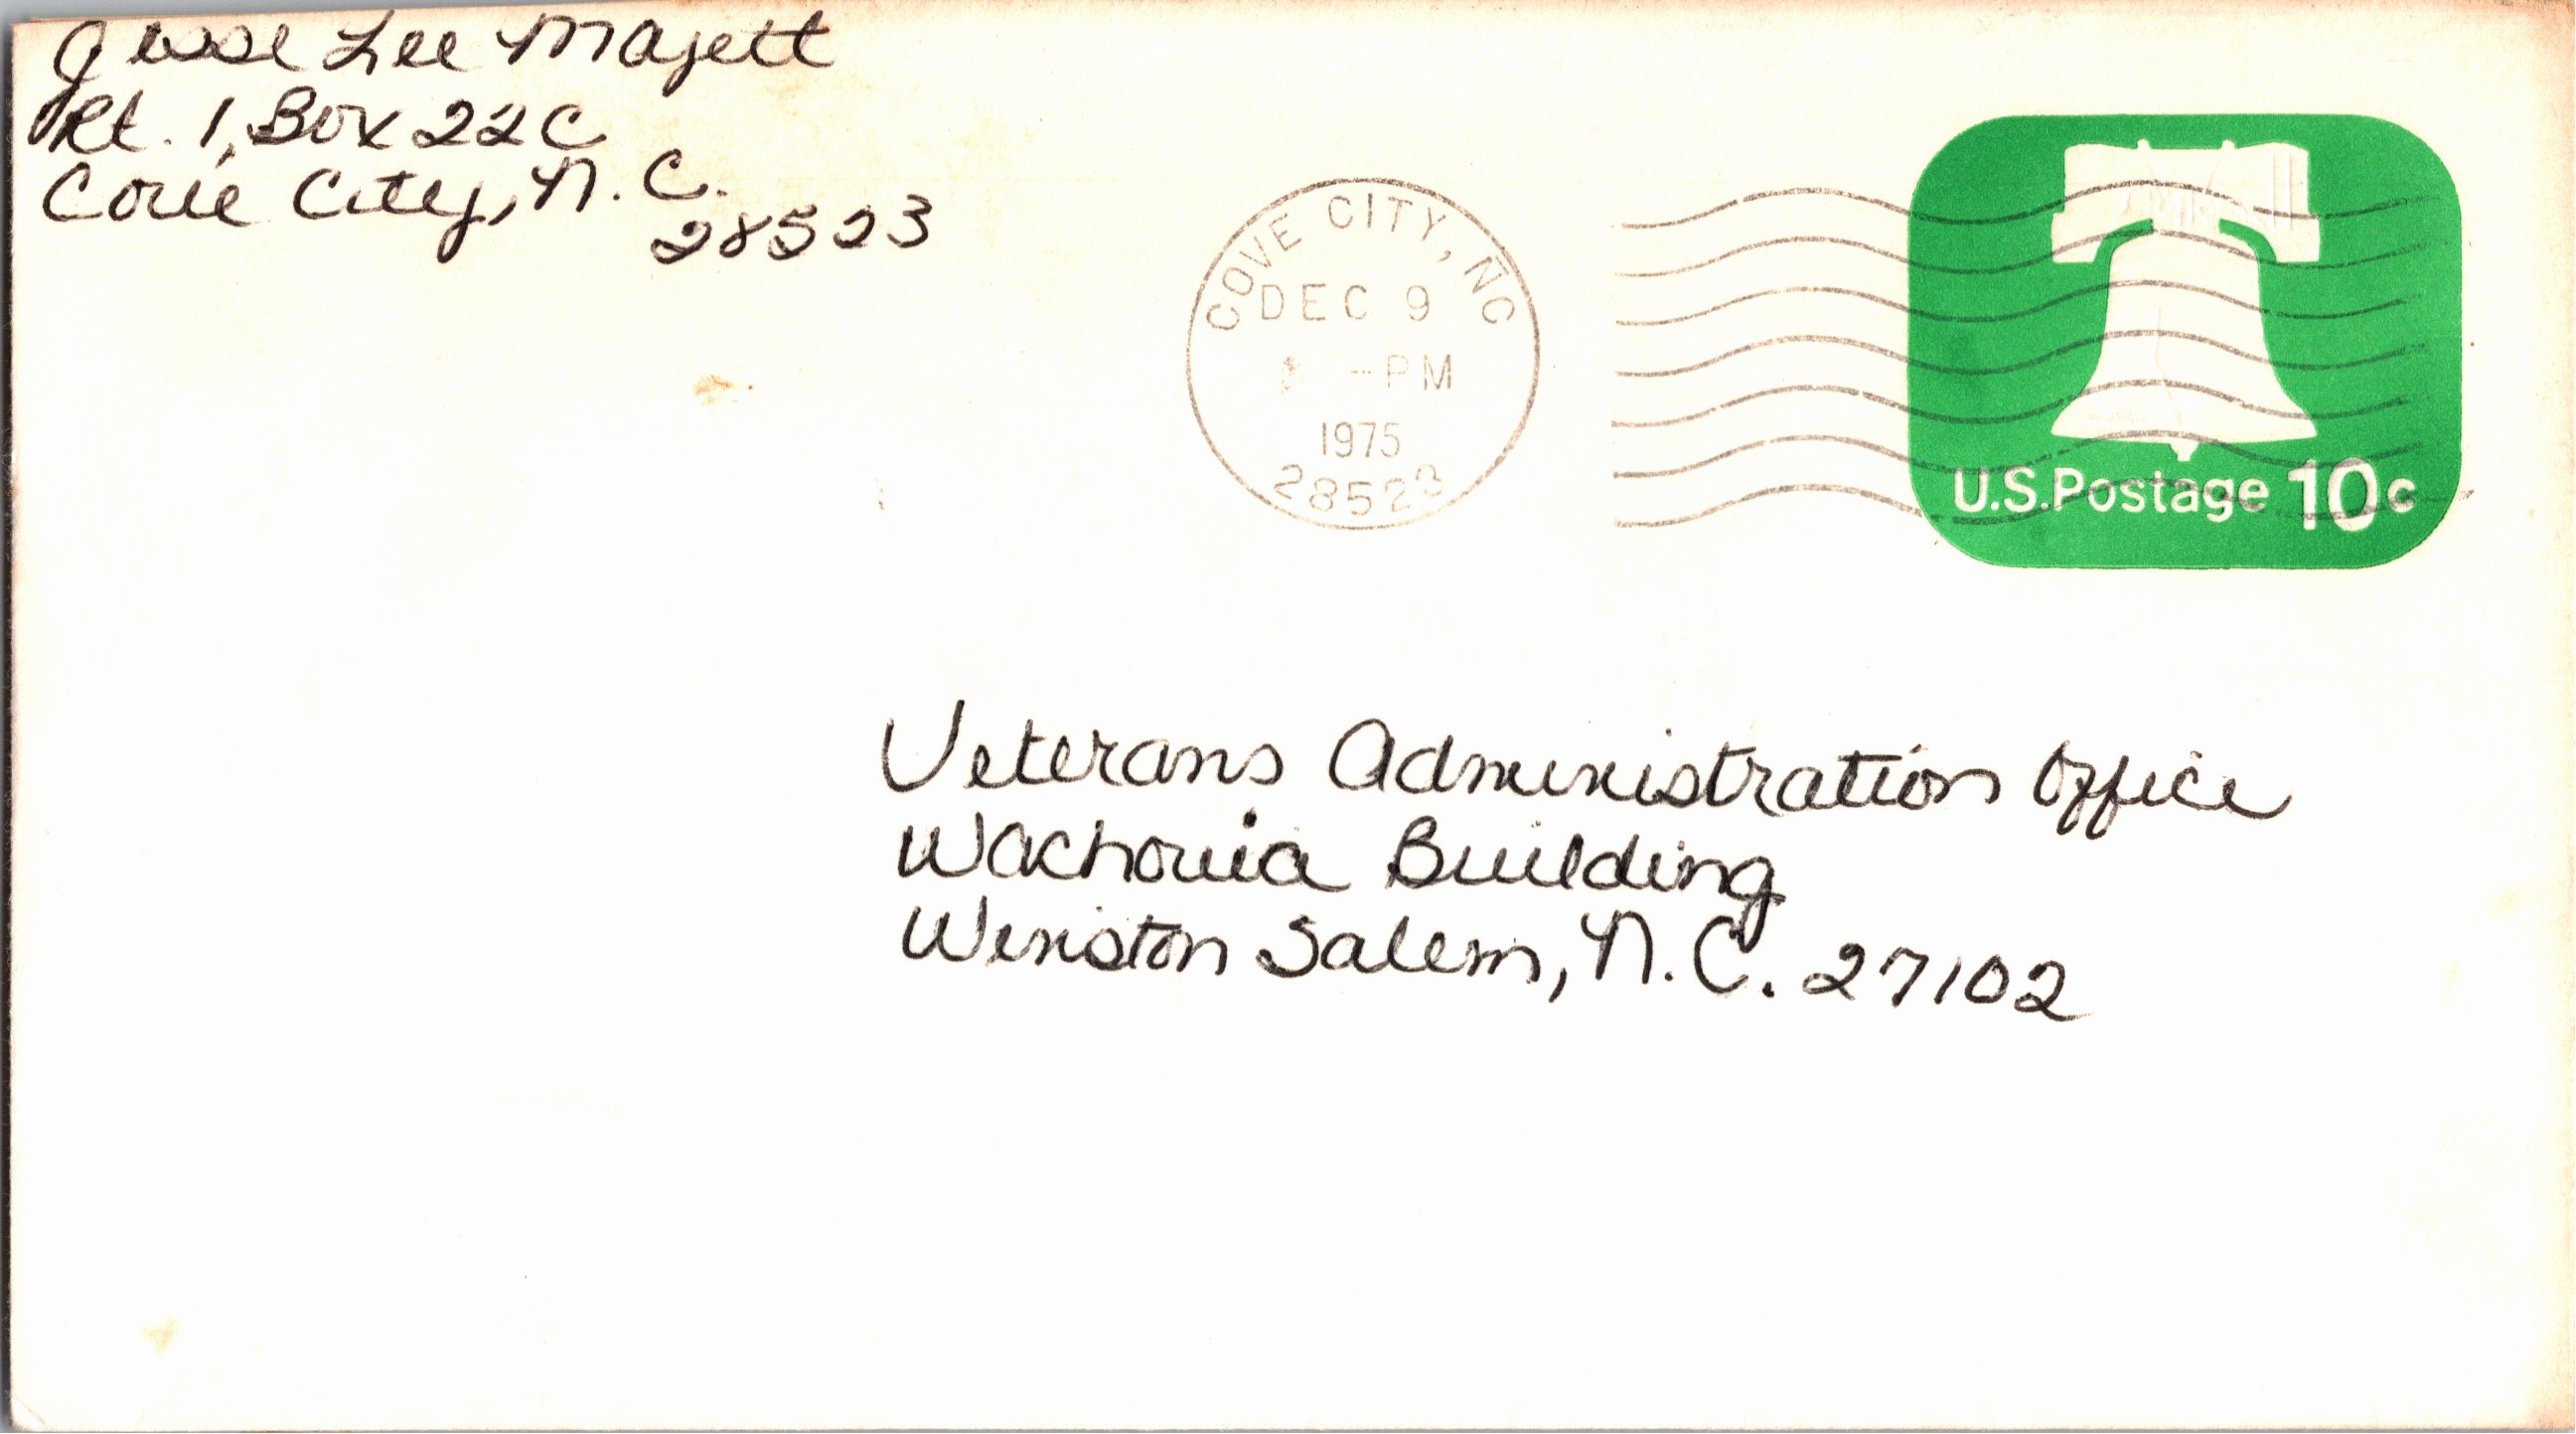 Jesse Lee Majett
Rt. 1, Box 22C
Cove City, N.C.
28523
COVE CITY, NC
DEC 9
-PM
1975
28523
U.S. Postage 10c
Veterans Administration Office
Wachovia Building
Winston Salem, N.C. 27102